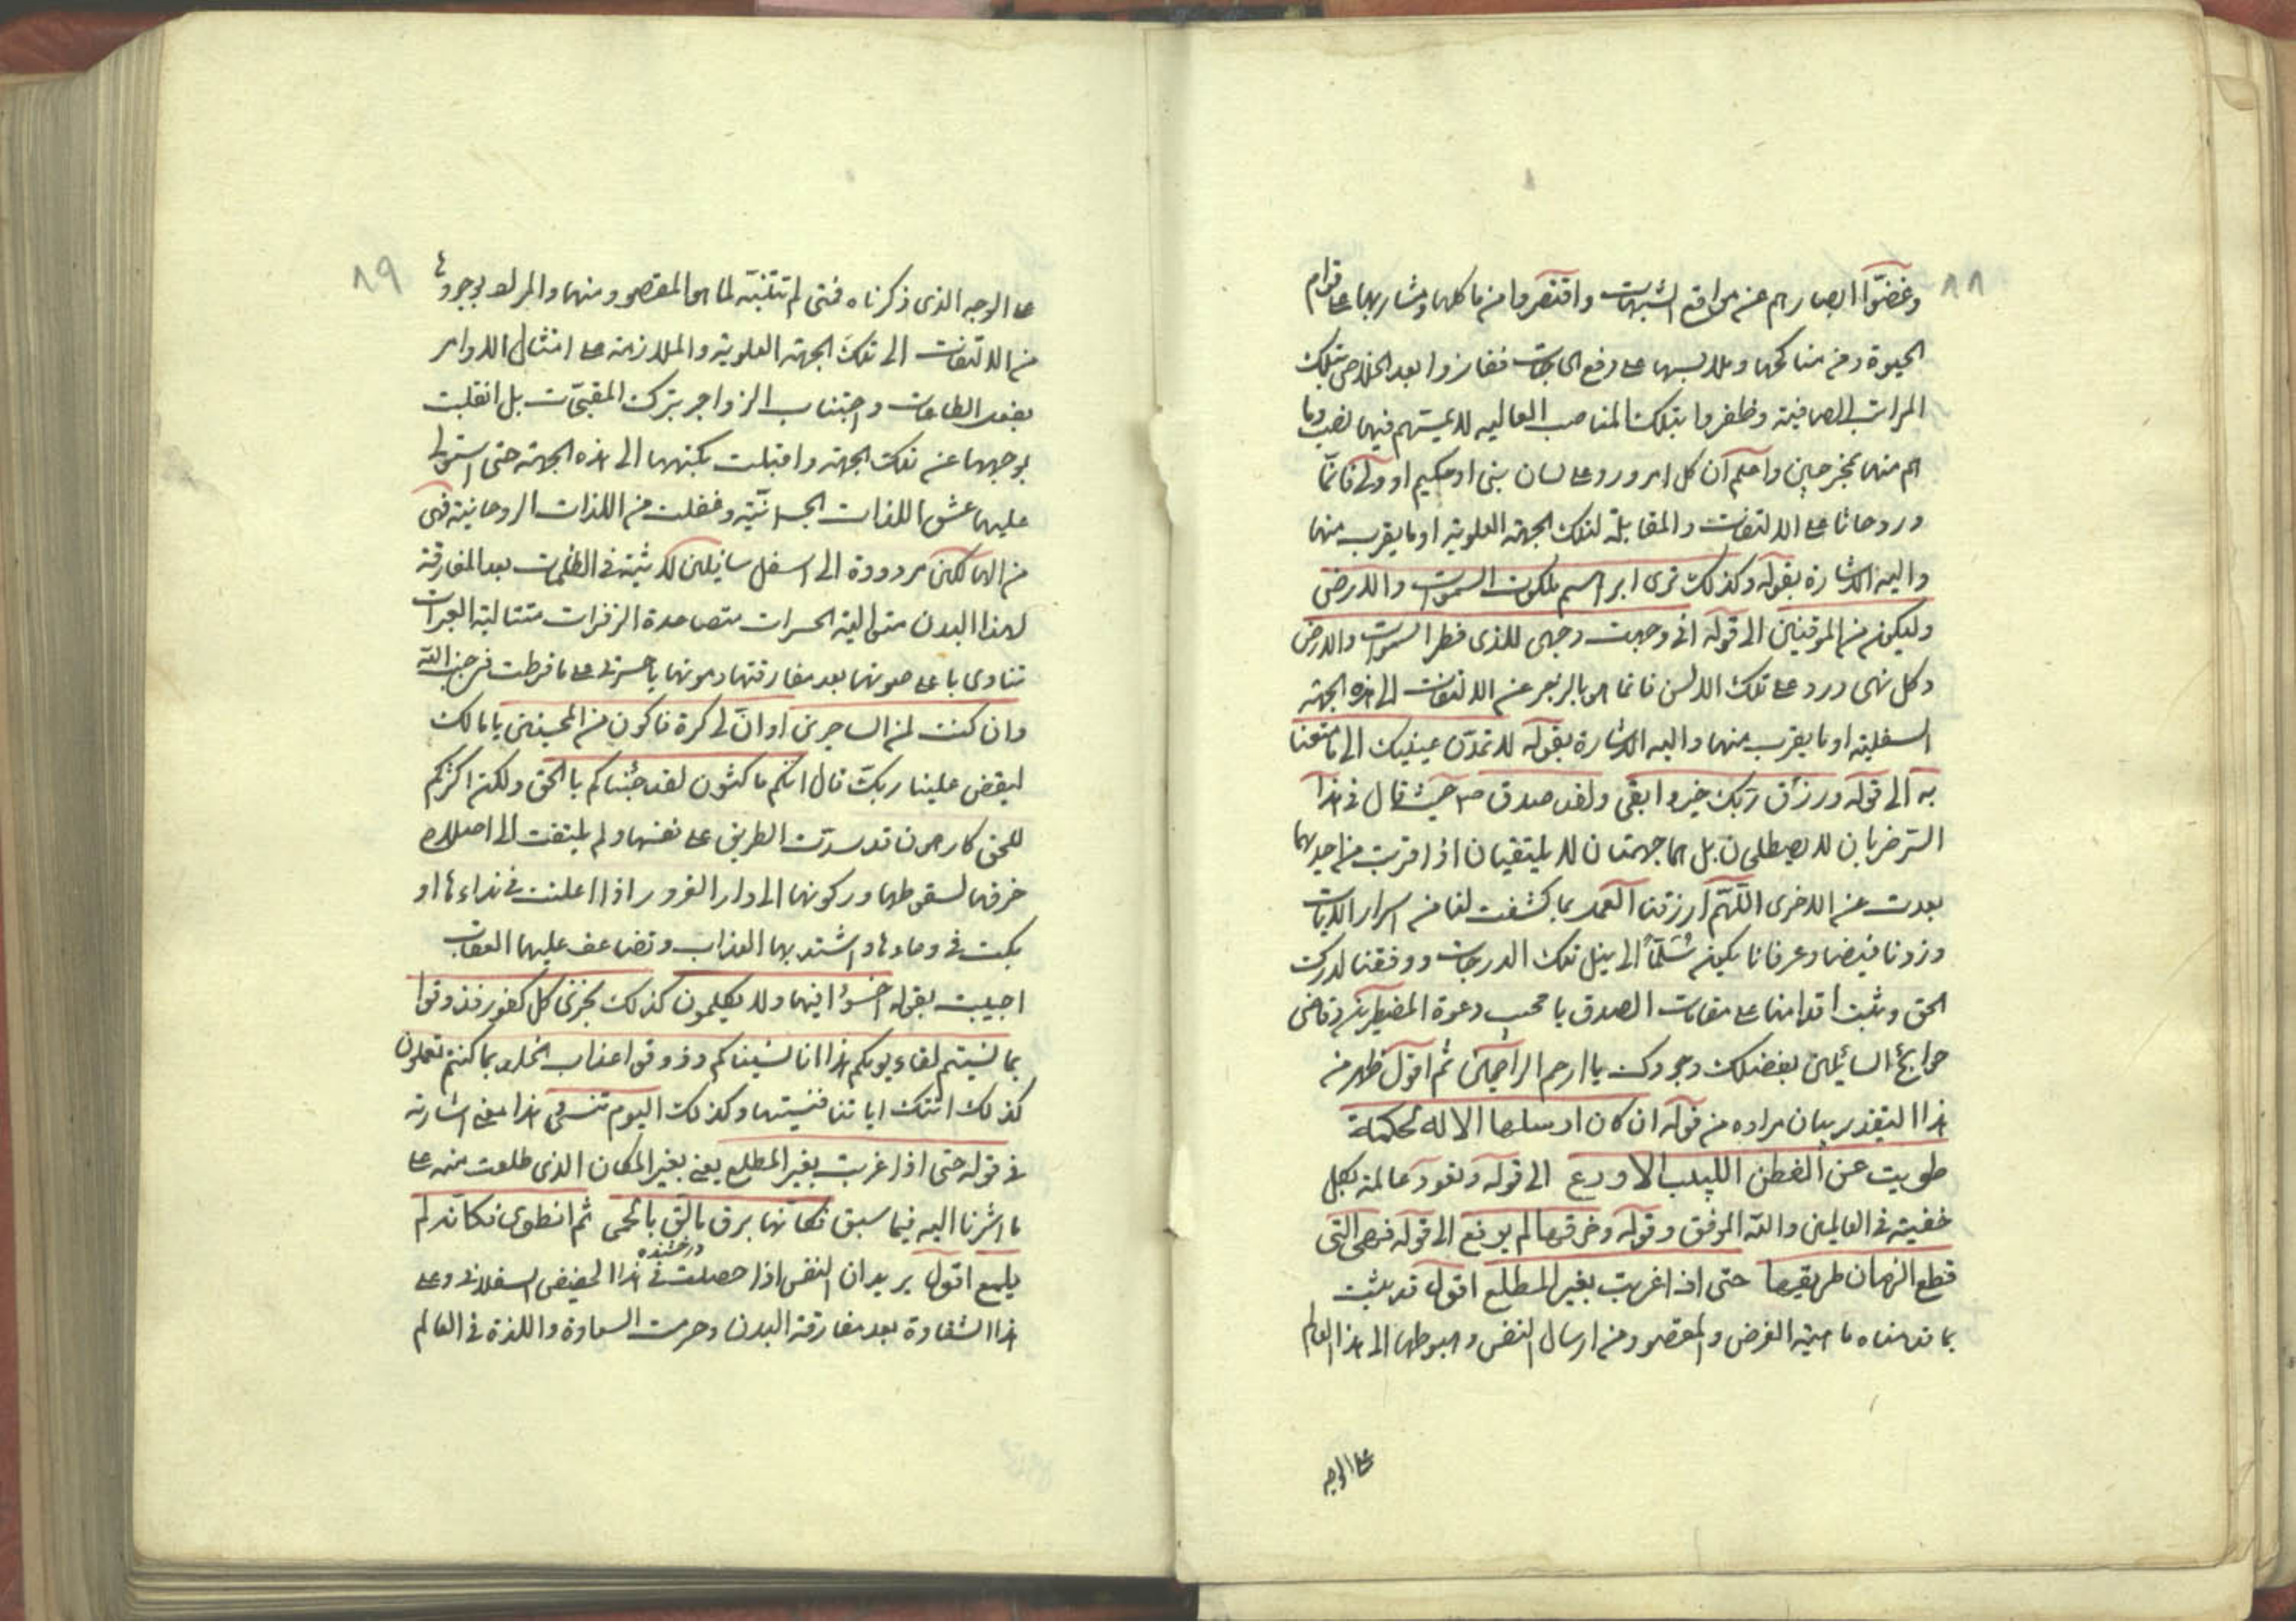 ٨٨
وغضّوا ابصارهم عن مواقع الشبهات واقتصروا من ماكلها ومشاربها على قوام
الحيوة ومن مناكحها وملابسها على رفع الحاجات ففازوا بعد الخلاص بتلك
المراتب الصافية وظفروا بتلك المناصب العاليه لا يمسّهم فيها نصب وما
هم منها بمخرجين واعلم ان كل امر ورد على لسان نبى او حكيم او ولى فانّما
ورد حاثا على الالتفات والمقابلة لتلك الجهة العلوية او ما يقرب منها
واليه الاشارة بقوله وكذلك نرى ابراهيم ملكوت السموات والارض
وليكون من الموقنين الى قوله انى وجهت وجهى للذى فطر السموات والارض
وكل نهى ورد على تلك الالسن فانما هو بالزجر عن الالتفات الى هذه الجهة
السفلية او ما يقرب منها واليه الاشارة بقوله لا تمدّن عينيك الى ما متعنا
به الى قوله ورزق ربك خير وابقى ولقد صدق حيث قال فى هذا
السّر ضربان لا يصطلحان بل هما جهتان لا يلتقيان اذا قربت من احديهما
بعدت عن الاخرى اللّهم ارزقنا العمل بما كشفت لنا من اسرار الايات
وزدنا فيضا وعرفانا يكون سُلّماً الى نيل تلك الدرجات ووفقنا لدرك
الحق وثبت اقدامنا على مقامات الصدق يا مجيب دعوة المضطرين وقاضى
حوايج السائلين بفضلك وجودك يا ارحم الراحمين ثم اقول ظهر من
هذا التقدير بيان مراده من قوله ان كان ارسلها الاله لحكمة
طويت عن الفطن اللبيب الاورع الى قوله وتعود عالمة بكل
خفية فى العالمين والله الموفق وقوله وخرقها لم يرقع الى قوله فهى التى
قطع الزمان طريقها حتى اذا غربت بغير المطلع اقول قد ثبت
بما قدمناه ماهية الغرض والمقصود من ارسال النفس وهبوطها الى هذا العالم
على الوجه
٨٩
على الوجه الذى ذكرناه فمتى لم تتنبّه لما هو المقصود منها والمراد بوجودها
من الالتفات الى تلك الجهة العلوية والملازمة على امتثال الاوامر
بفعل الطاعات واجتناب الزواجر بترك المقبّحات بل انقلبت
بوجهها عن تلك الجهة واقبلت بكنهها الى هذه الجهة حتى استولى
عليها عشق اللذات الجسمانيّة وغفلت من اللذات الروحانية فهى
من الهالكين مردودة الى اسفل سافلين لابثة فى الظلمات بعد المفارقة
لهذا البدن متوالية الحسرات متصاعدة الزفرات متتالية العبرات
تنادى باعلى صوتها بعد مفارقتها وموتها يا حسرتى على ما فرطت فى جنب الله
وان كنت لمن الساخرين او انّ لى كرة فاكون من المحسنين يا مالك
ليقض علينا ربك قال انكم ماكثون لقد جئناكم بالحق ولكن اكثركم
للحق كارهون قد سدت الطريق على نفسها ولم يلتفت الى اصلاح
خرقها لسقوطها وركونها الى دار الغرور اذا اعلنت فى نداءها او
بكت فى دعاءها واشتد بها العذاب وتضاعف عليها العقاب
اجيبت بقوله اخسؤا فيها ولا تكلمون كذلك نجزى كل كفور فذوقوا
بما نسيتم لقاء يومكم هذا انا نسيناكم وذوقوا عذاب الخلد بما كنتم تعملون
كذلك اتتك اياتنا فنسيتها وكذلك اليوم تنسى هذا معنى اشارته
فى قوله حتى اذا غربت بغير المطلع يعنى بغير المكان الذى طلعت منه على
ما اشرنا اليه فيما سبق فكانّها برق تالّق بالحمى ثم انطوى فكانّه لم
يلمع اقول يريد ان النفس اذا حصلت فى هذا الحضيض السفلانى وعلى
درخشنده
هذا الشقاوة بعد مفارقة البدن وحرمت السعادة واللذة فى العالم